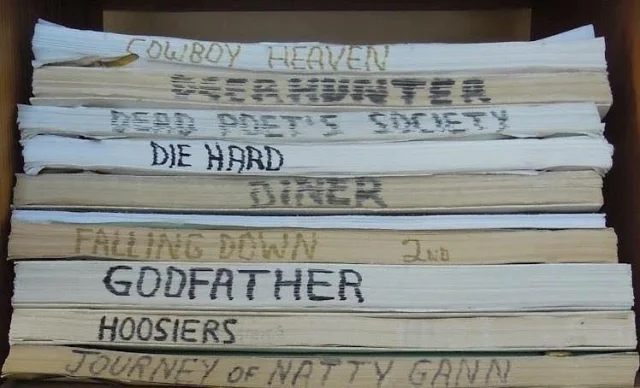 COWBOY HEAVEN
DEERHUNTER
DEAD POET'S SOCIETY
DIE HARD
DINER
FALLING DOWN 2ND
GODFATHER
HOOSIERS
JOURNEY OF NATTY GANN